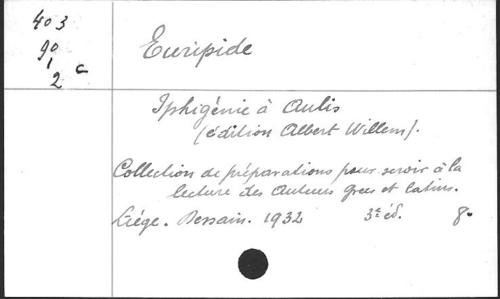 403
90
1
2 c
Euripide
Iphigénie à Aulis
(édition Albert Willem).
Collection de préparations pour servir à la
lecture des Auteurs grecs et latins.
Liége. Dessain. 1932 3e éd. 8°